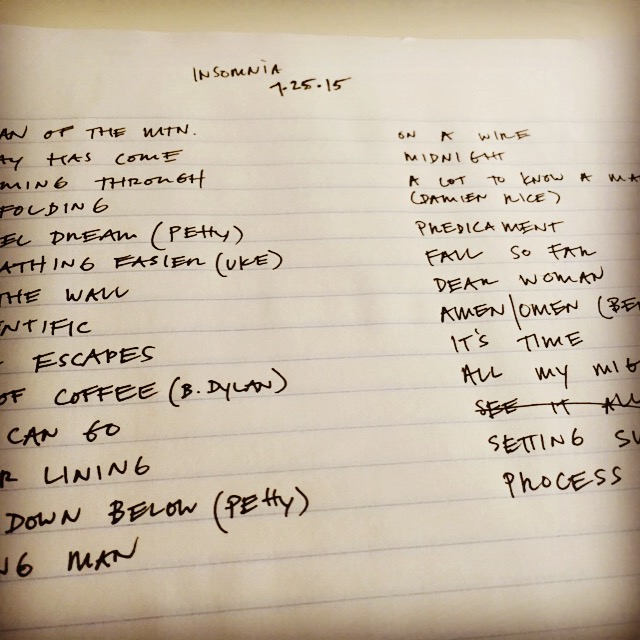 INSOMNIA
7.25.15
AN OF THE MTN.
AY HAS COME
MING THROUGH
FOLDING
EL DREAM (PETTY)
ATHING EASIER (UKE)
THE WALL
ENTIFIC
ESCAPES
OF COFFEE (B. DYLAN)
CAN GO
R LINING
DOWN BELOW (PETTY)
NG MAN
ON A WIRE
MIDNIGHT
A LOT TO KNOW A MA
(DAMIEN RICE)
PREDICAMENT
FALL SO FAR
DEAR WOMAN
AMEN/OMEN (BE
IT'S TIME
ALL MY MIG
SEE IT ALL
SETTING SU
PROCESS